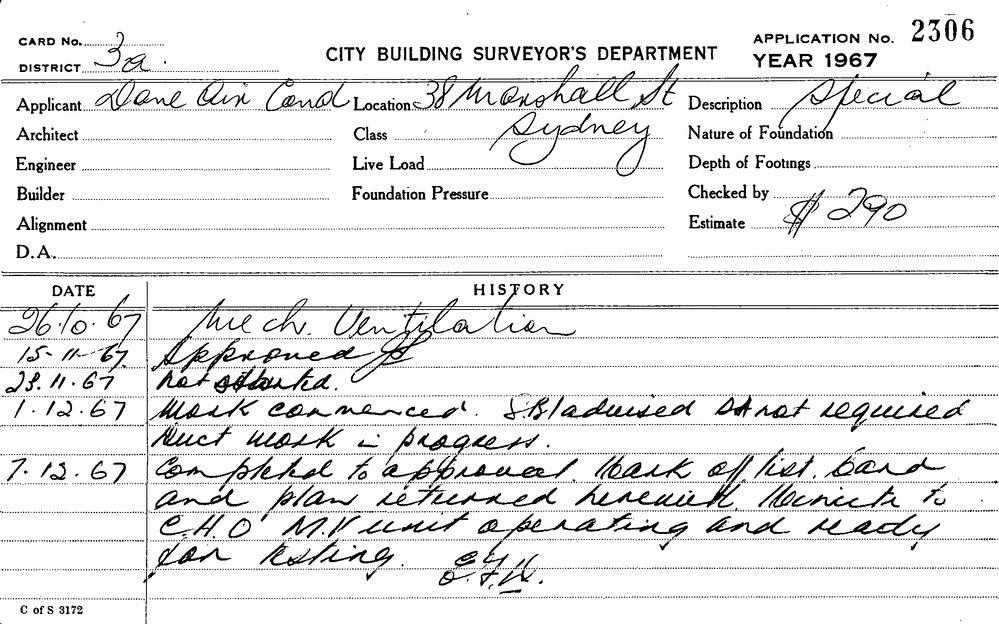 CARD No.
DISTRICT 3a.
CITY BUILDING SURVEYOR'S DEPARTMENT
APPLICATION No. 2306
YEAR 1967
Applicant Dane Air Cond Location 38 Marshall St Description Special
Architect Class Sydney Nature of Foundation
Engineer Live Load Depth of Footings
Builder Foundation Pressure Checked by
Alignment Estimate $ 290
D.A.
DATE HISTORY
26.10.67 Mech. Ventilation
15-11-67 Approved
23.11.67 Not started.
1.12.67 Work commenced. advised not required
Duct work in progress.
7.12.67 Completed to approval. Mark off list. Card
and plan returned herewith. Minute to
C.H.O M.V unit operating and ready
for testing.
C of S 3172